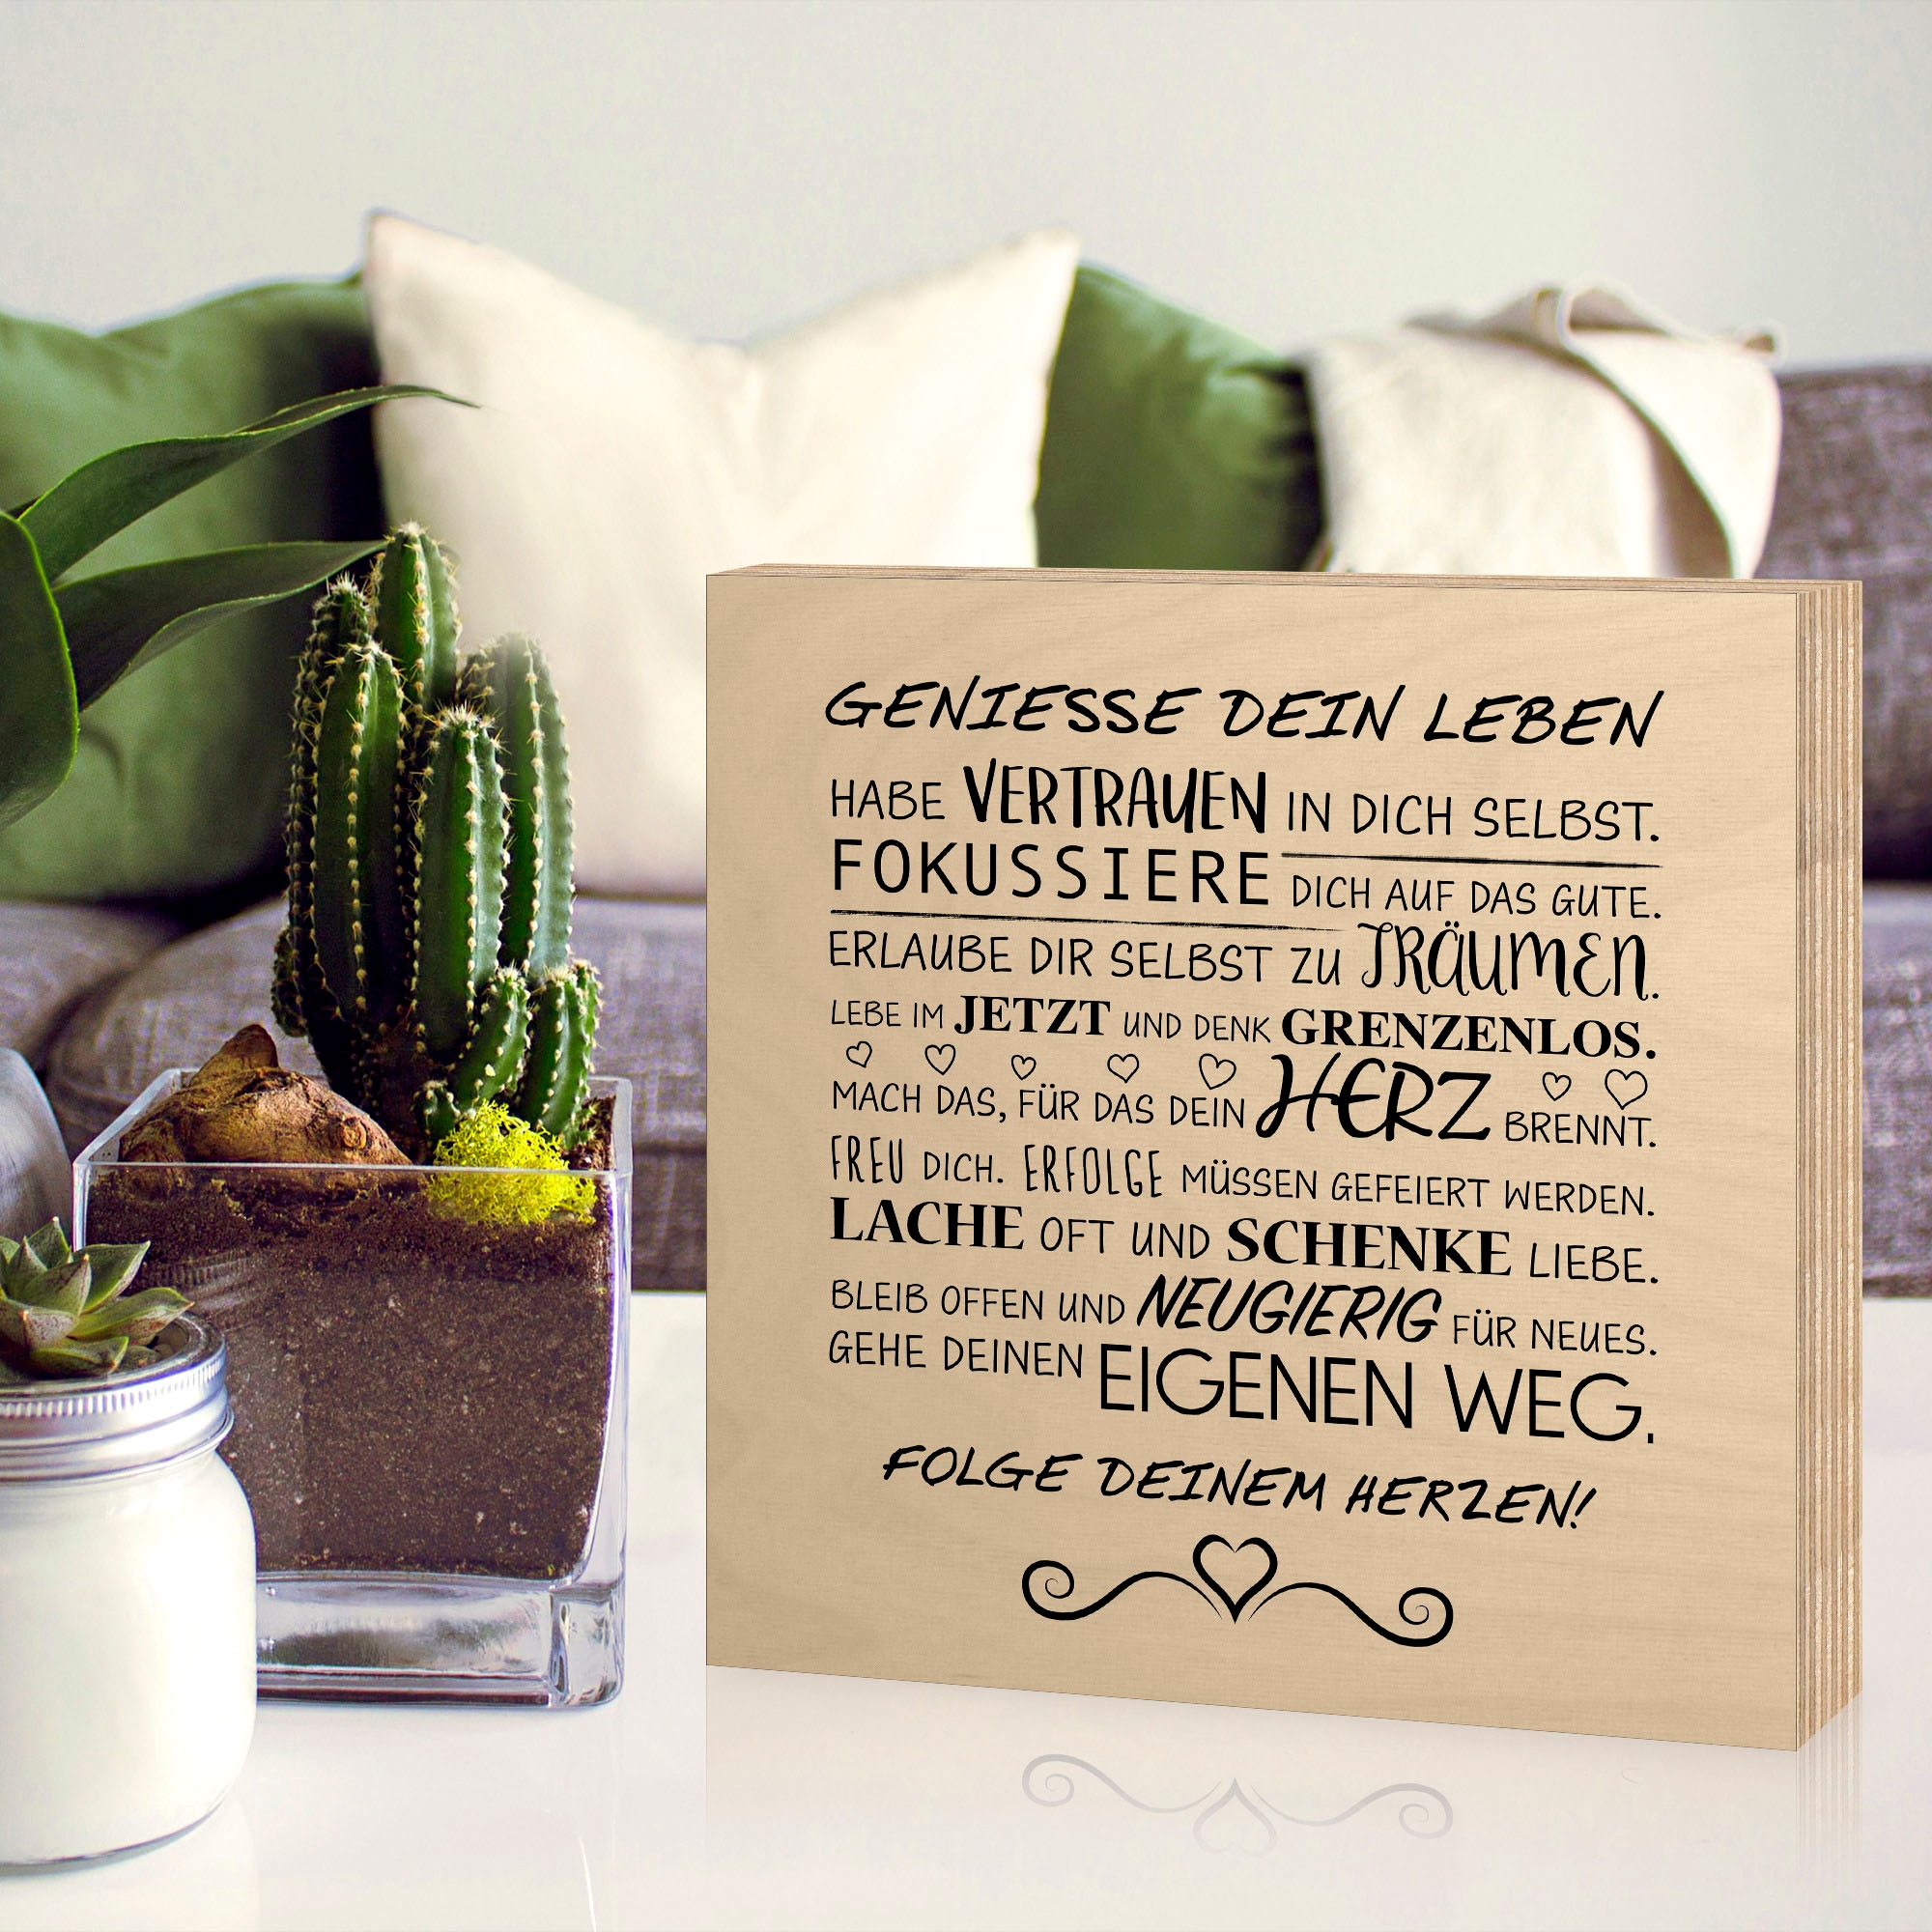 GENIESSE DEIN LEBEN
HABE VERTRAUEN IN DICH SELBST.
FOKUSSIERE DICH AUF DAS GUTE.
ERLAUBE DIR SELBST ZU TRÄUMEN.
LEBE IM JETZT UND DENK GRENZENLOS.
MACH DAS, FÜR DAS DEIN HERZ BRENNT.
FREU DICH. ERFOLGE MÜSSEN GEFEIERT WERDEN.
LACHE OFT UND SCHENKE LIEBE.
BLEIB OFFEN UND NEUGIERIG FÜR NEUES.
GEHE DEINEN EIGENEN WEG.
FOLGE DEINEM HERZEN!